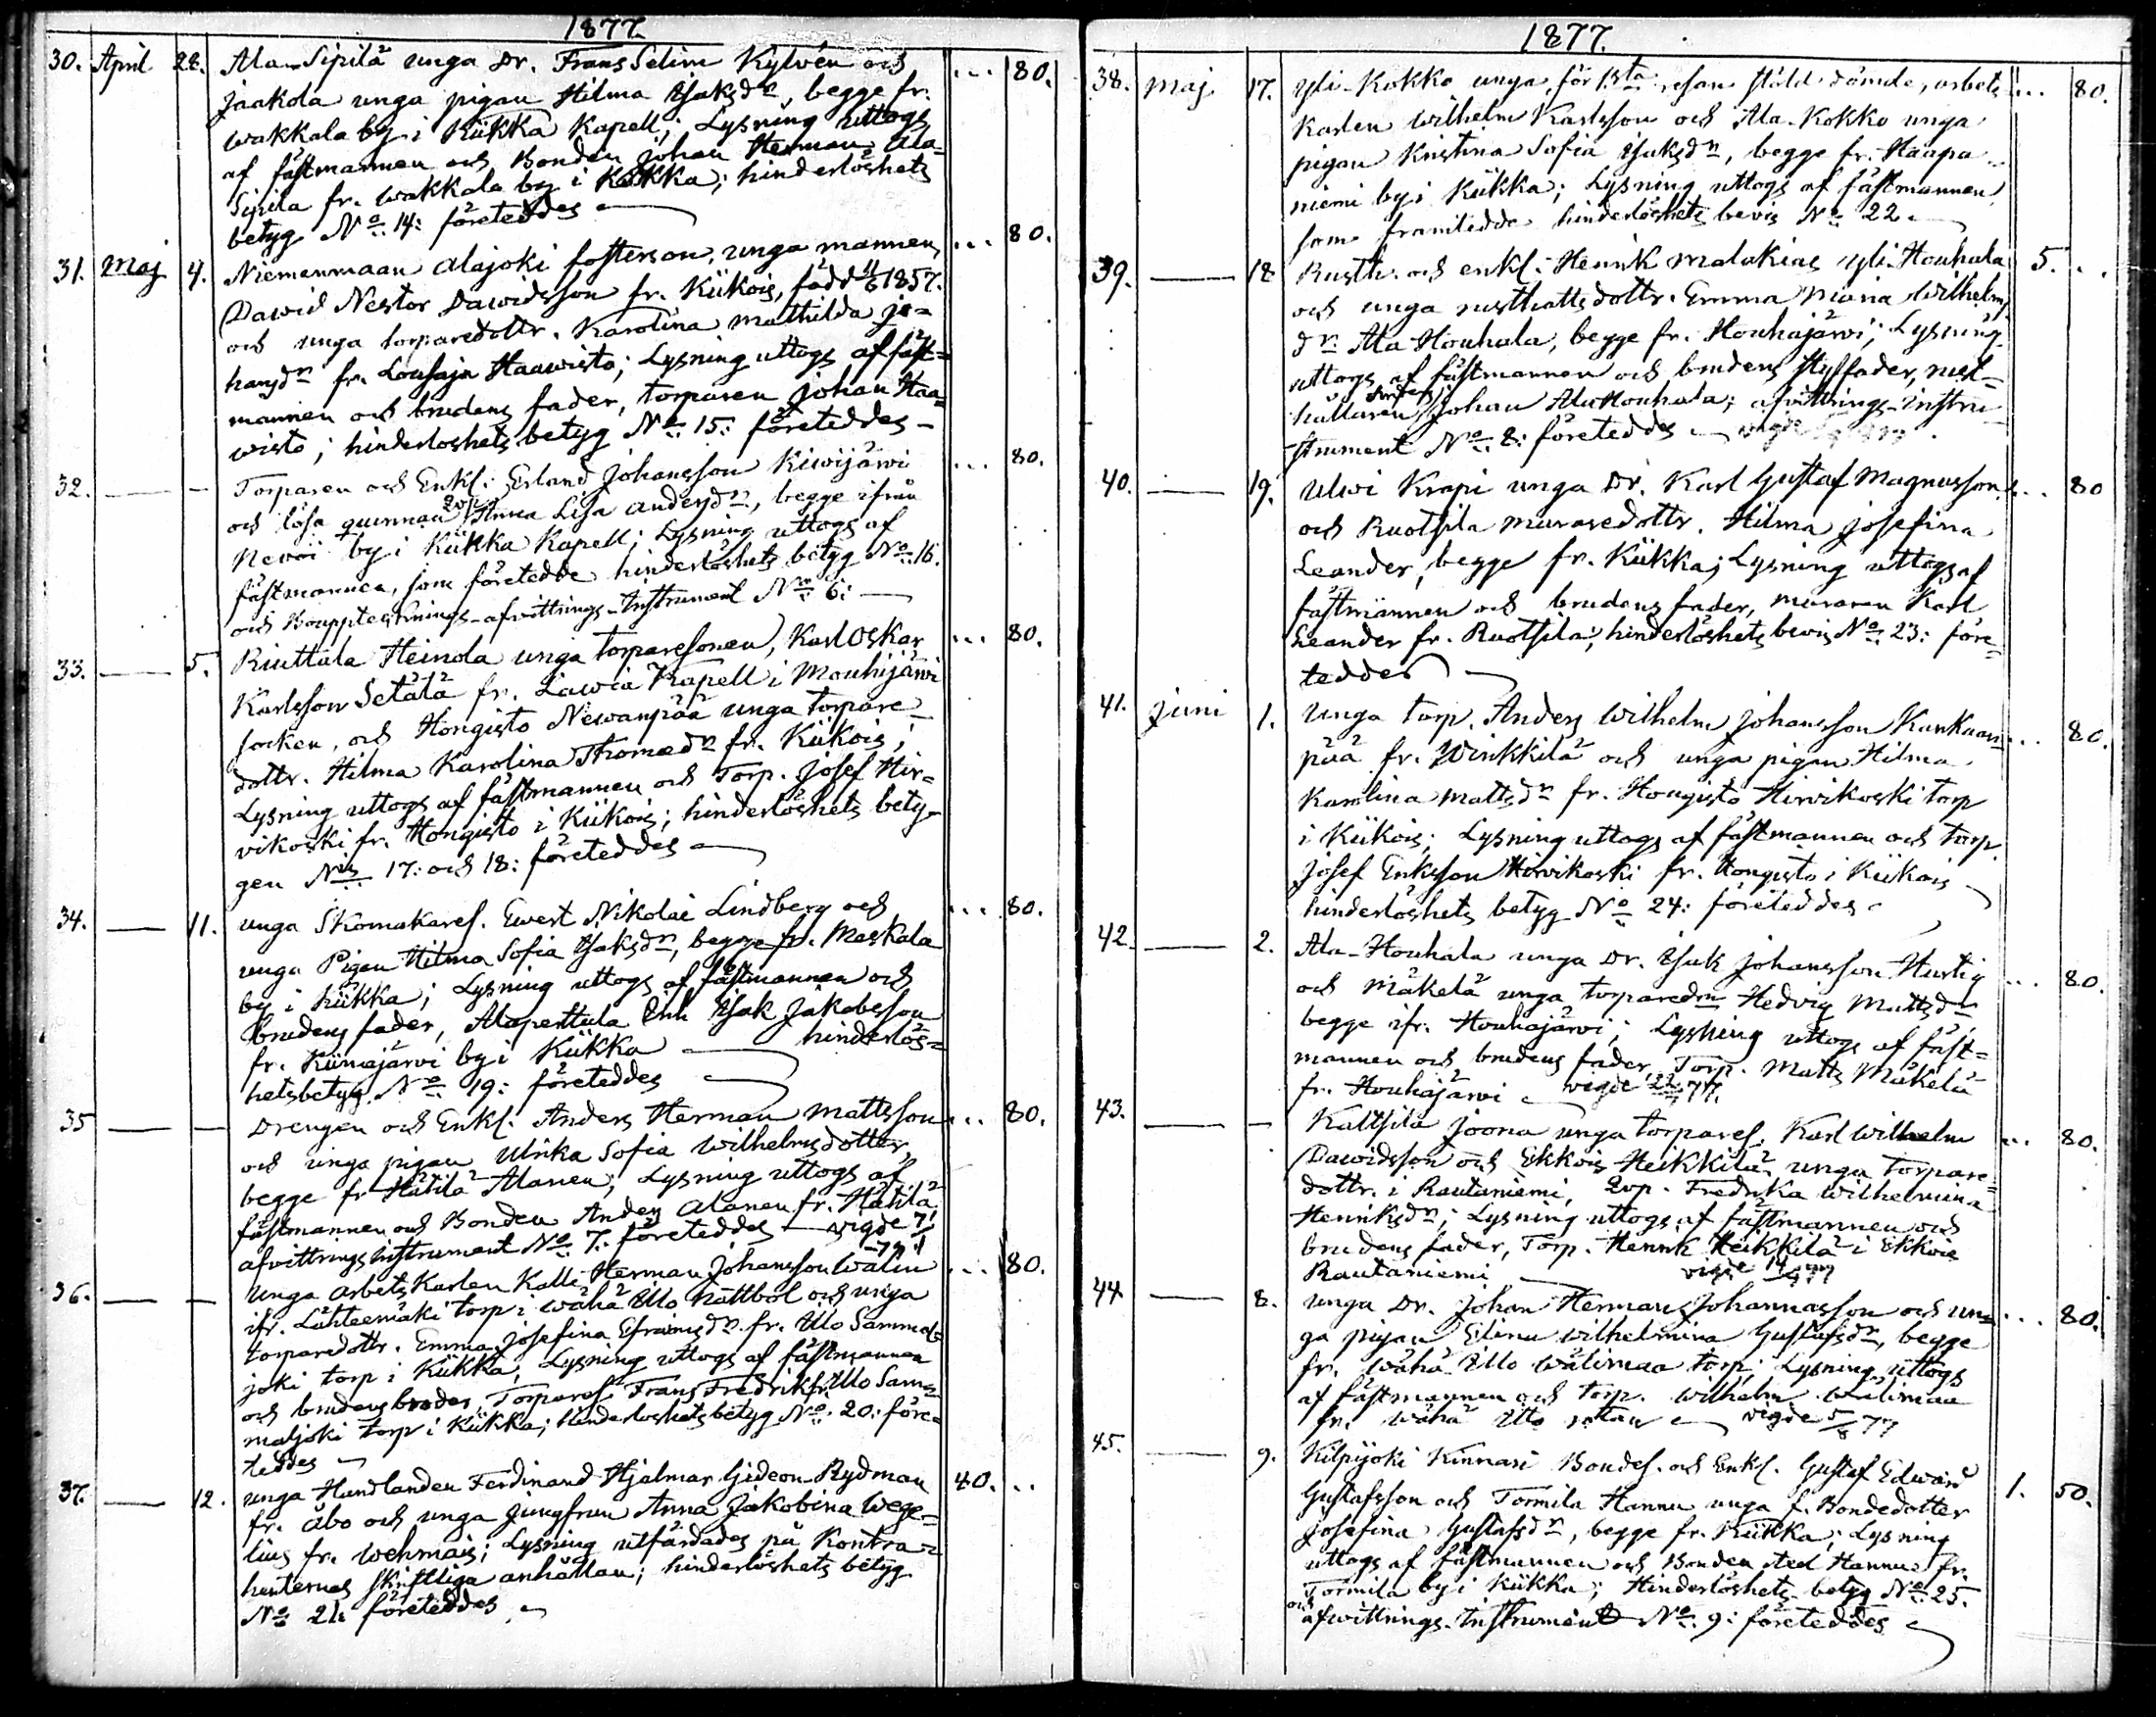 1877.
30. April 28. Ala-Sipilä unga Dr. Frans Selim Kylvén och ... 80.
Jaakola unga pigan Hilma Isaksdr, begge fr.
Wakkala by i Kiikka Kapell; Lysning uttogs
af fästmannen och Bonden Johan Herman Ala-
Sipila fr. Wakkala by i Kiikka; hinderlöshets
betyg No 14: företeddes
31. Maj 4. Niemenmaan Alajoki fosterson, unga mannen, ... 80.
Dawid Nestor Dawidsson fr. Kiikois, född 11/6 1857.
och unga torparedottr. Karolina Mathilda Jo-
hansdr fr. Lousaja Haawisto; Lysning uttogs af fäst=
mannen och brudens fader, torparen Johan Haa=
wisto; hinderloshets betyg No 15: företeddes -
32. — - Torparen och Enkl. Erland Johansson Kiwijärwi ... 80.
och lösa quinnan Anna Lisa Andersdr, begge ifrån
by i Kiikka Kapell; Lysning uttogs af
fästmannen, som företedde hinderlöshets betyg No 16.
och Boupptecknings-afvittrings-Instrument No 6: —
33. — 5. Riuttala Heinola unga torparesonen, Karl Oskar ... 80.
Karlsson Setälä fr. Lawia Kapell i Mouhijärwi
socken, och Hongisto Newanpää unga torpare-
dottr. Hilma Karolina Thomædr fr. Kiikois;
Lysning uttogs af fästmannen och Torp. Josef Hir=
vikoski fr. Hongisto i Kiikois; hinderlöshets bety-
gen Nis 17: och 18: företeddes
34. — 11. unga Skomakares. Ewert Nikolai Lindberg och ... 80.
unga Pigan Hilma Sofia Isaksdr, begge fr. Meskala
by i Kiikka; Lysning uttogs af fästmannen och
brudens fader, Alaperttula Inh Isak Jakobsson
fr. Kiimajärvi by i Kiikka — hinderlös=
hetsbetyg No 19: företeddes
35 — — Drengen och Enkl. Anders Herman Mattsson ... 80.
och unga pigan Ulrika Sofia Wilhelmsdotter,
begge fr Hätilä Alanen; Lysning uttogs af
fästmannen och Bonden Anders Alanen fr. Hätilä
afvittrings Instrument No 7. företeddes — vigde
36. — — unga arbets Karlen Kalle Herman Johansson Walin ... 80.
ifr. Lähteemäki torp i Wähä Ullo Nattbol och unga
torparedottr. Emma Josefina Efraimsdr fr. Illo Sammal=
joki torp i Kiikka; Lysning uttogs af fästmannen
och brudens broder, Torpares. Frans Fredrik fr. Illo Sam=
maljoki torp i Kiikka; hinderloshets betyg No 20: före=
teddes
37. — 12. unga Handlanden Ferdinand Hjalmar Gideon Rydman 40. ..
fr. Åbo och unga Jungfrun Anna Jakobina Wege=
lius fr. Wehmais; Lysning utfärdades på Kontra-
henternes skriftliga anhållan; hinderlöshets betyg
No 21: företeddes
1877.
38. Maj 17. Yli-Kokko unga, för 1sta resan stöld dömde, arbets ... 80.
Karlen Wilhelm Karlsson och Ala-Kokko unga
pigan Kristina Sofia Isaksdr, begge fr. Haapa-
niemi by i Kiikka; Lysning uttogs af fästmannen,
som framtedde hinderlöshets bevis No 22
39. — 18 Rusth. och enkl. Henrik Malakias Yli-Houhala 5. ..
och unga rusthallsdottr. Emma Maria Wilhelms
dr. Ala Houhala, begge fr. Houhajärwi; Lysning
uttogs af fästmannen och brudens styffader, rust=
hållaren Johan Ala Houhala; afvittrings-instru
strument No 8: företeddes — vigde
40. — 19. Ulwi Krapi unga Dr. Karl Gustaf Magnusson ... 80
och Ruotsila murare dottr. Hilma Josefina
Leander, begge fr. Kiikka; Lysning uttogs af
fästmännen och brudens fader, muraren Karl
Leander fr. Ruotsila; hinderlöshets bevis No 23: före=
teddes
41. Juni 1. Unga torp. Anders Wilhelm Johansson Kankaan= ... 80.
pää fr. Winkkilä och unga pigan Hilma
Karolina Mattsdr fr. Hongisto Hirvikoski torp
i Kiikois; Lysning uttogs af fästmannen och torp.
Josef Eriksson Hirvikoski fr. Hongisto i Kiikois
hinderlöshets betyg No 24: företeddes
42. — 2. Ala-Houhala unga Dr. Isak Johansson Hurtig ... 80.
och Mäkelä unga torparedtr Hedvig Mattsdr
begge ifr. Houhajärvi; Lysning uttogs af fäst=
mannen och brudens fader, Torp. Matts Mäkelä
fr. Houhajärvi vigde 77.
43. — — Kaltsila Joona unga torpares. Karl Wilhelm ... 80.
Dawidsson och Ekkois Heikkilä unga torpare=
dottr. i Rautaniemi, Fredrika Wilhelmina
Henriksdr; Lysning uttogs af fästmannen och
brudens fader, Torp. Henrik Heikkilä i Ekkois
Rautaniemi vigde
44 — 8. unga Dr. Johan Herman Johannasson och un= ... 80.
ga pigan Elina Wilhelmina Gustafsdr, begge
fr. Wähä Illo Wälimaa torp; Lysning uttogs
af fästmannen och torp. Wilhelm Wälimaa
fr. Wähä Illo vigde 5/8 77
45. — 9. Kilpijoki Kinnari Bondes. och Enkl. Gustaf Edward 1. 50.
Gustafsson och Tormila Hannu unga f. Bondedotter
Josefina Gustafsdr, begge fr. Kiikka; Lysning
uttogs af fästmannen och Bonden Hannu fr.
Tormila by i Kiikka; Hinderlöshets betyg No 25.
och afwittrings-Instrument No 9: företeddes